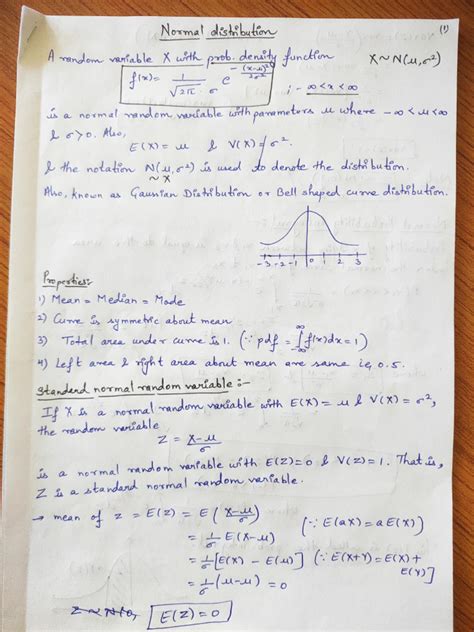 Normal distribution (1)
A random variable X with prob. density function X ~ N(μ, σ²)
f(x) = 1/(√2π σ) e^(-(x-μ)²/2σ²) ; -∞ < x < ∞
is a normal random variable with parameters μ where -∞ < μ < ∞
& σ > 0. Also,
E(X) = μ & V(X) = σ².
& the notation N(μ, σ²) is used to denote the distribution.
~ X
Also, known as Gaussian Distribution or Bell shaped curve distribution.
-3 -2 -1 0 1 2 3
Properties:-
1) Mean = Median = Mode
2) Curve is symmetric about mean
3) Total area under curve is 1. (∵ pdf = ∫_{-∞}^{∞} f(x)dx = 1)
4) Left area & right area about mean are same i.e, 0.5.
Standard normal random variable :-
If X is a normal random variable with E(X) = μ & V(X) = σ²,
the random variable
Z = (X-μ)/σ
is a normal random variable with E(Z) = 0 & V(Z) = 1. That is,
Z is a standard normal random variable.
→ mean of Z = E(Z) = E((X-μ)/σ) (∵ E(aX) = a E(X))
= 1/σ E(X-μ)
= 1/σ [E(X) - E(μ)] (∵ E(X+Y) = E(X) + E(Y)]
= 1/σ (μ-μ) = 0
Z ~ N(0, E(Z) = 0